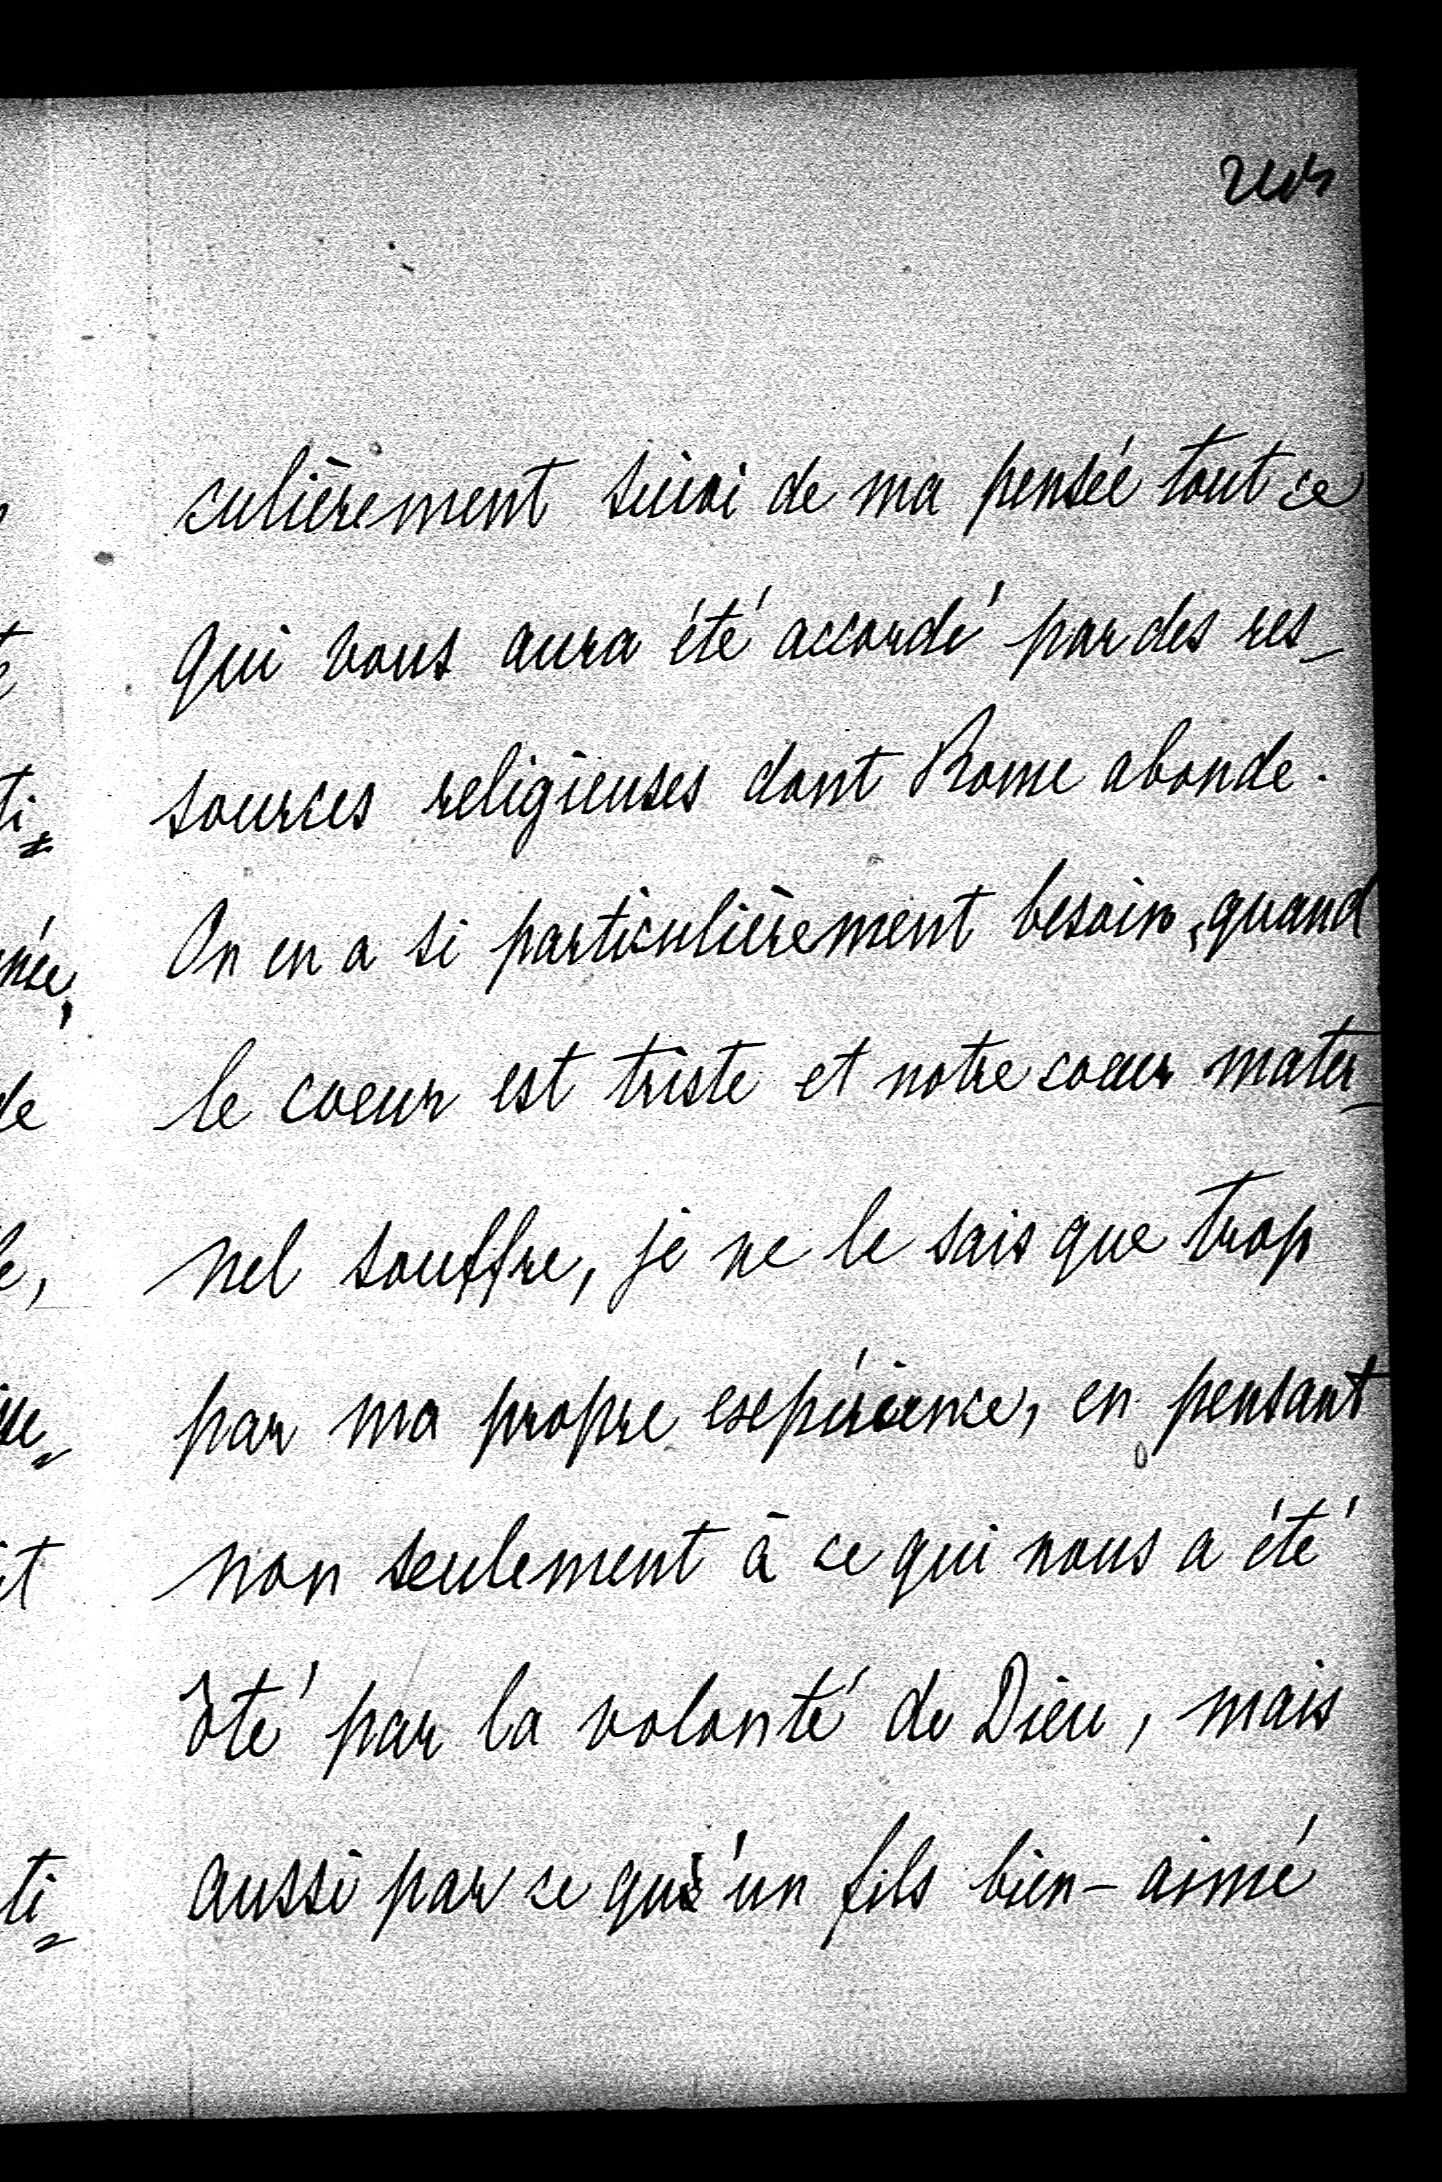 culièrement suivi de ma pensée tout ce
qui vous aura été accordé par des res_
sources religieuses dont Rome abonde.
On en a si particulièrement besoin, quand
le coeur est triste et notre coeur mater_
nel souffre, je ne le sais que trop
par ma propre expérience, en pensant
non seulement à ce qui nous a été
ôté par la volonté de Dieu, mais
aussi par ce qu'un fils bien-aimé